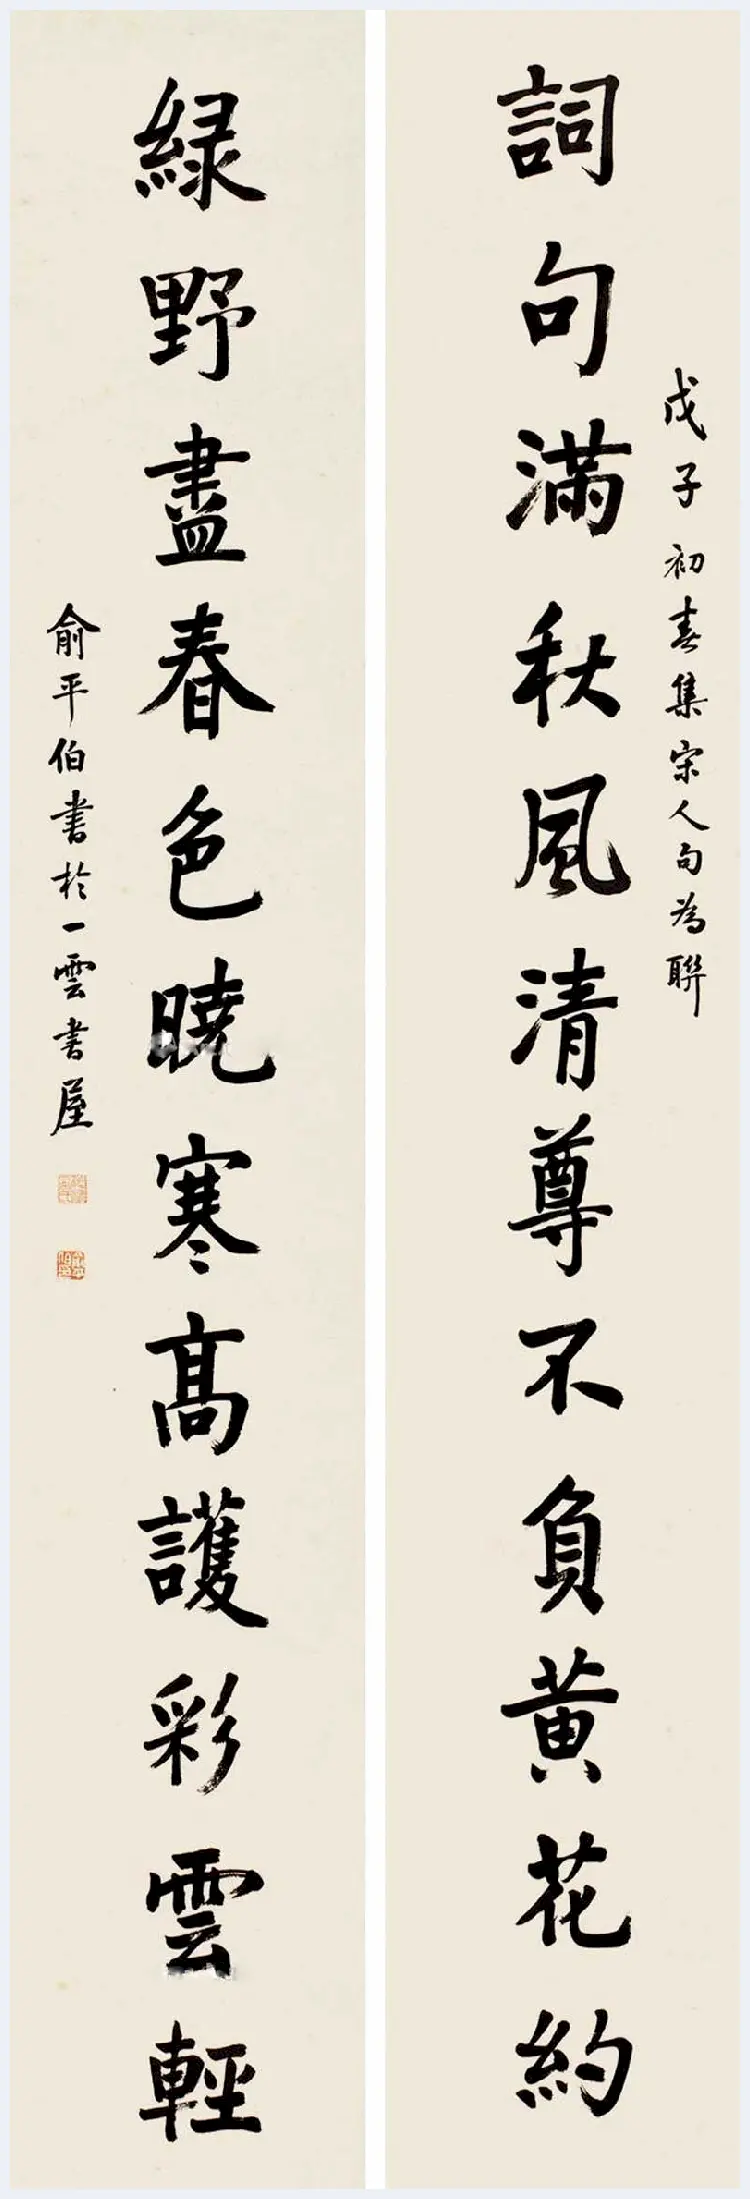 戊子初春集宋人句為聯
詞句滿秋風清尊不負黃花約
綠野盡春色曉寒高護彩雲輕
俞平伯書於一雲書屋